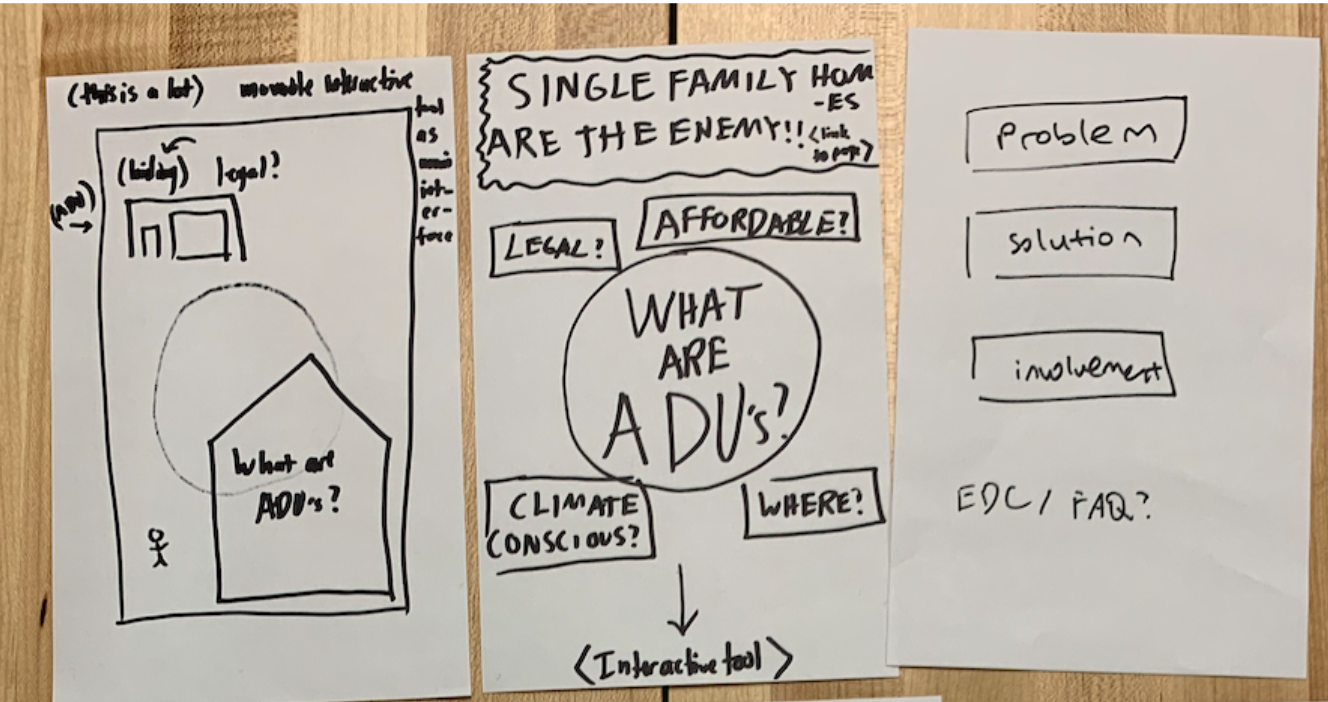 (this is a lot) movable interactive
tool
as
main
int-
er-
face
(building) legal?
(ADU)
What are
ADU's?
SINGLE FAMILY HOM
-ES
ARE THE ENEMY!! <link
to page>
LEGAL?
AFFORDABLE?
WHAT
ARE
ADU's?
CLIMATE
CONSCIOUS?
WHERE?
<Interactive tool>
Problem
solution
involvement
EDC/ FAQ?